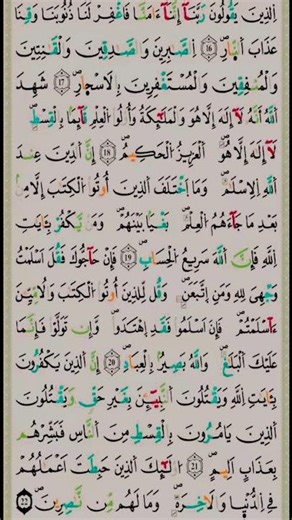 اِ۬لذِينَ يَقُولُونَ رَبَّنَآ إِنَّنَآ ءَامَنَّا فَاغْفِرْ لَنَا ذُنُوبَنَا وَقِنَا
عَذَابَ اَ۬لنّ۪ارِ 16 اِ۬لصَّٰبِرِينَ وَالصَّٰدِقِينَ وَالْقَٰنِتِينَ
وَالْمُنفِقِينَ وَالْمُسْتَغْفِرِينَ بِالَاسْح۪ارِ 17 شَهِدَ
اَ۬للَّهُ أَنَّهُۥ لَآ إِلَٰهَ إِلَّا هُوَ وَالْمَلَٰٓئِكَةُ وَأُوْلُواْ اُ۬لْعِلْمِ قَآئِماَۢ بِالْقِسْطِ
لَآ إِلَٰهَ إِلَّا هُوَ اَ۬لْعَزِيزُ اُ۬لْحَكِيمُ 18 إِنَّ اَ۬لدِّينَ عِندَ
اَ۬للَّهِ اِ۬لِاسْلَٰمُ وَمَا اَ۪خْتَلَفَ اَ۬لذِينَ أُوتُواْ اُ۬لْكِتَٰبَ إِلَّا مِنۢ
بَعْدِ مَا جَآءَهُمُ اُ۬لْعِلْمُ بَغْياَۢ بَيْنَهُمْ وَمَنْ يَّكْفُرْ بِـَٔايَٰتِ
اِ۬للَّهِ فَإِنَّ اَ۬للَّهَ سَرِيعُ اُ۬لْحِسَابِ 19 فَإِنْ حَآجُّوكَ فَقُلَ اَسْلَمْتُ
وَجْهِيَ لِلهِ وَمَنِ اِ۪تَّبَعَنِۦ وَقُل لِّلذِينَ أُوتُواْ اُ۬لْكِتَٰبَ وَالُامِّيِّـۧنَ
ءَآسْلَمْتُمْ فَإِنَ اَسْلَمُواْ فَقَدِ اِ۪هْتَدَواْ وَّإِن تَوَلَّوْاْ فَإِنَّمَا
عَلَيْكَ اَ۬لْبَلَٰغُ وَاللَّهُ بَصِيرُۢ بِالْعِبَادِ 20 إِنَّ اَ۬لذِينَ يَكْفُرُونَ
بِـَٔايَٰتِ اِ۬للَّهِ وَيَقْتُلُونَ اَ۬لنَّبِيٓـِٕۧنَ بِغَيْرِ حَقّٖ وَيَقْتُلُونَ
اَ۬لذِينَ يَامُرُونَ بِالْقِسْطِ مِنَ اَ۬لنَّاسِ فَبَشِّرْهُم
بِعَذَابٍ اَلِيمٍ 21 اُوْلَٰٓئِكَ اَ۬لذِينَ حَبِطَتَ اَعْمَٰلُهُمْ
فِے اِ۬لدُّنْي۪ا وَالَاخِرَةِ وَمَا لَهُم مِّن نَّٰصِرِينَ 22